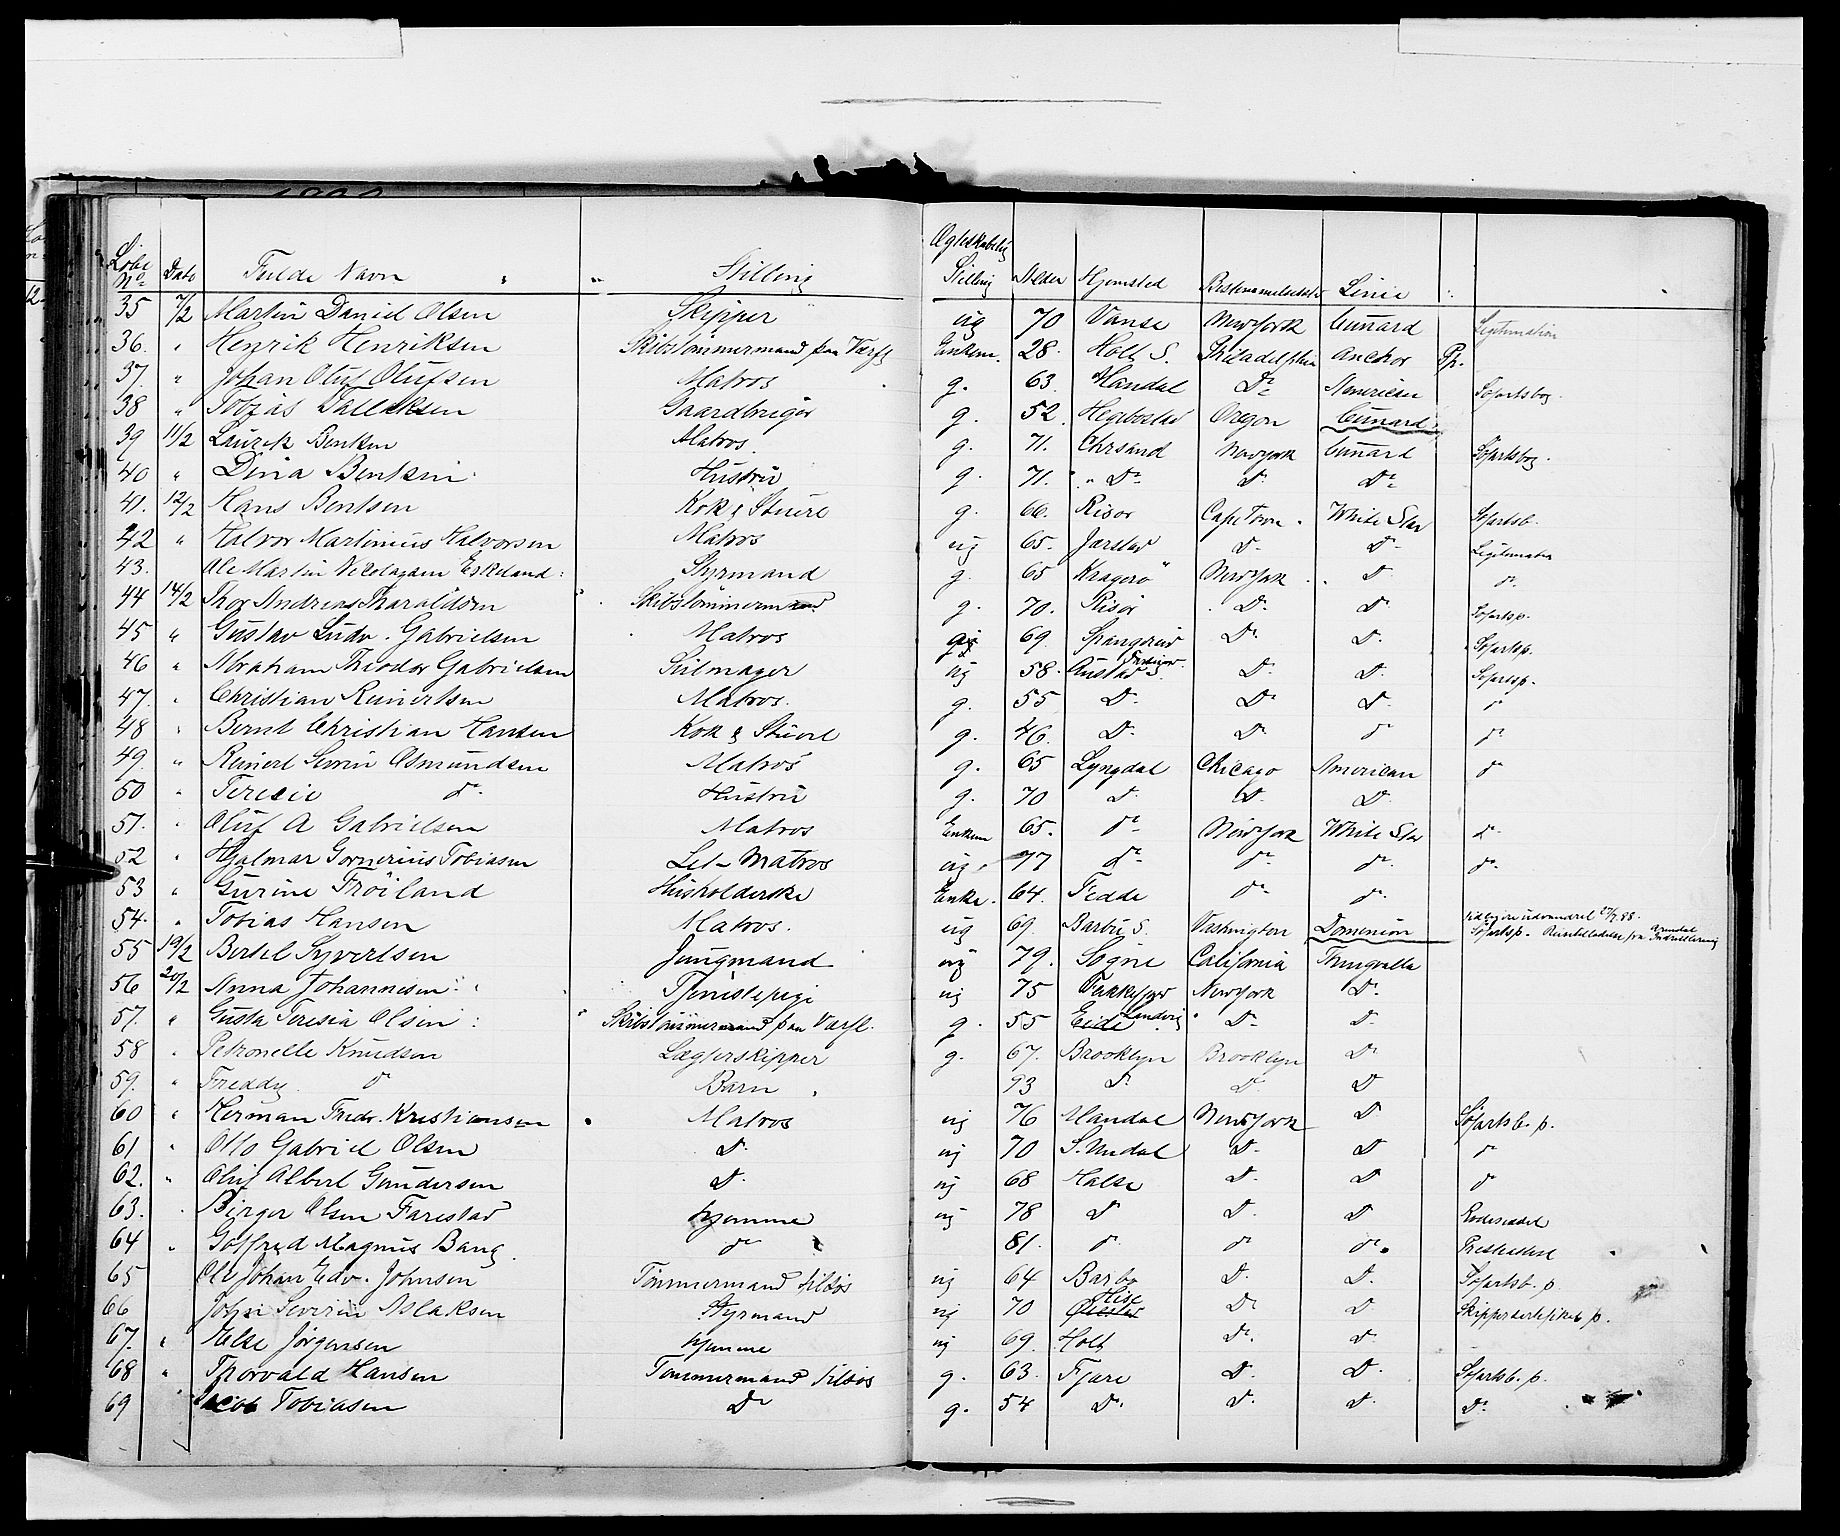 Løbe No Dato Fulde Navn Stilling Ægteskabelig Stilling Alder Hjemsted Bestemmelsessted Linie
35 7/2 Martin Daniel Olsen Skipper ug 70 Vanse Newyork Cunard Legitimation
36. " Henrik Henriksen Skibstømmermand paa Værft Enkem. 28. Holt S. Philadelphia Anchor Pp.
37. " Johan Oluf Olufsen Matros g. 63. Mandal Do American Søfartsbog.
38 " Tobias Gaardbruger g. 52. Hegebostad Oregon Cunard
39 11/2 Laurek Bentsen Matros g. 71. Chrsand Newyork Cunard Søfartsbog.
40 " Dina Bentsen Hustru g. 71. " Do Do Do
41. 12/2 Hans Bentsen Kok & Stuert g. 66. Risør Cape Town. White Star Søfartsb.
42 " Halvor Martinius Halvorsen Matros ug 65. Do Do Legitimation
43. Ole Martin Nicolaysen Eskeland Styrmand g. 65 Kragerø Newyork Do do
44 14/2 Thor Andreas Tharaldsen Skibstømmermand g. 70. Risør Do Do Søfartsp.
45 " Gustav Ludv. Gabrielsen Matros 69 Spangereid Do Do Søfartsp.
46 " Abraham Theodor Gabrielsen Seilmager ug 58. Austad S. Do Do Søfartsp.
47. " Christian Reinertsen Matros. g. 55 Do Do Do do
48 " Bernt Christian Hansen Kok & Stuert g. 46. Do Do do do
49. " Reinert Severin Osmundsen Matros g. 65 Lyngdal Chicago American do
50 " Teresie do Hustru g. 70 do Do Do
51. " Oluf A Gabrielsen Matros Enkem 65. do Newyork White Star do
52 " Hjalmar Gornerius Tobiasen Let-Matros ug. 77 do do do. do.
53 " Gurine Frøiland Husholderske Enke. 64. Fedde do do.
54. " Tobias Hansen Matros. ug 69. Barbu S. Washington Dominion tidligere udvandret 27/7 88. Søfartsp. Reisetilladelse fra Arendal Indrullering
55 19/2 Bertel Syvertsen Jungmand ug 79. Søgne California Thingvalla
56 20/2 Anna Johannesen Tjenistepige ug 75 Newyork Do
57. " Gusta Teresia Olsen Skibstømmermand paa Værft. g. 55 Eide Landvig Do Do
58 " Petronelle Knudsen Lægterskipper g. 67. Brooklyn Brooklyn Do
59. " Freddy do Barn 93 Do Do Do
60 " Herman Fredr. Kristiansen Matros ug 76 Mandal Newyork Do Søfartsb. p.
61 " Otto Gabriel Olsen Do ug 70 S. Undal Do Do do
62. " Oluf Albert Gundersen Do ug 68 Halse Do Do do
63. Birger Olsen Farestad hjemme ug 78 Do Do Do Rodeseddel
64 " Gotfred Magnus Bang. do 81. do do do. Presteattest
65 Ole Johan Edv. Johnsen Tømmermand tilsøs ug 64 Barbo Do Do. Søfartsb. p.
66 John Severin Aslaksen Styrmand ug 70 Hise Øiestad Do Do Skippercertifikat p.
67. " Else Jørgensen hjemme ug 69. Holt Do Do
68 " Thorvald Hansen Tømmermand tilsøs g. 63. Fjære Do Do Søfartsb. p.
69 Jacob Tobiasen Do g. 54 Do. Do Do Do